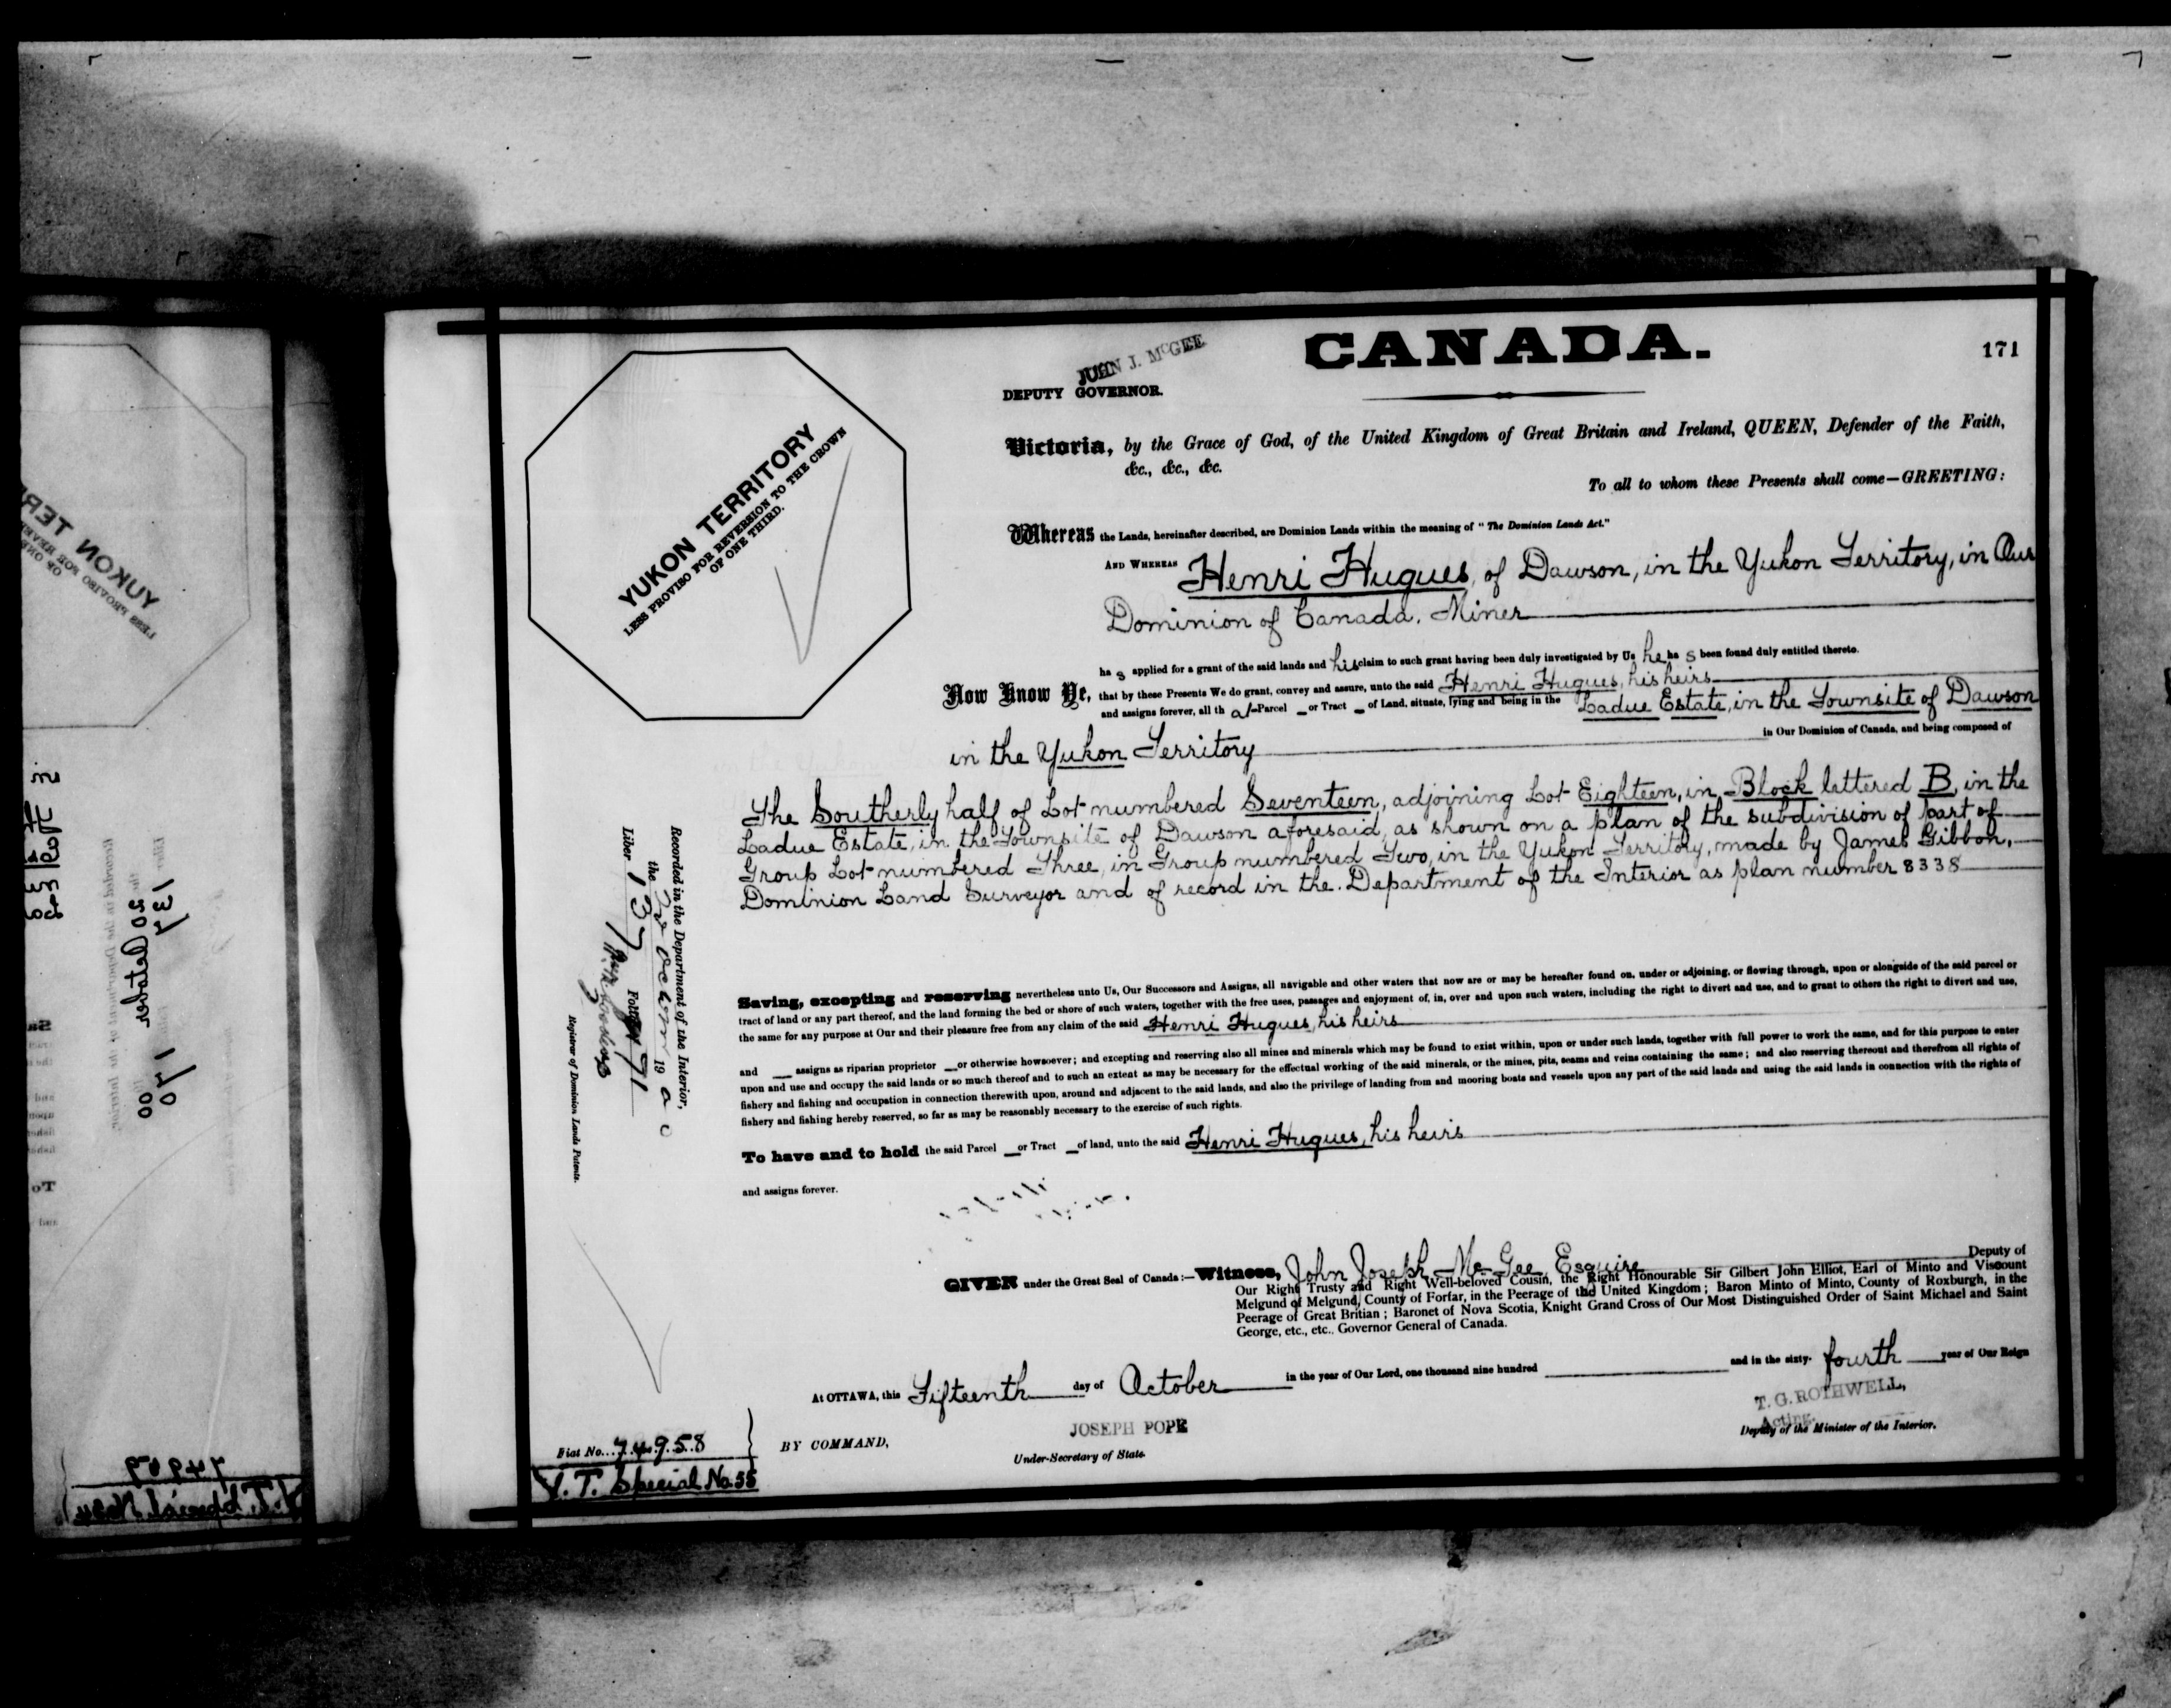 CANADA.
171
JOHN J. McGEE
DEPUTY GOVERNOR.
YUKON TERRITORY
LESS PROVISO FOR REVERSION TO THE CROWN
OF ONE THIRD.
Victoria, by the Grace of God, of the United Kingdom of Great Britain and Ireland, QUEEN, Defender of the Faith,
&c., &c., &c.
To all to whom these Presents shall come—GREETING:
Whereas the Lands, hereinafter described, are Dominion Lands within the meaning of "The Dominion Lands Act."
AND WHEREAS Henri Hugues, of Dawson, in the Yukon Territory, in Our
Dominion of Canada. Miner
has applied for a grant of the said lands and his claim to such grant having been duly investigated by Us he has been found duly entitled thereto.
Now Know Ye, that by these Presents We do grant, convey and assure, unto the said Henri Hugues, his heirs
and assigns forever, all that Parcel or Tract of Land, situate, lying and being in the Ladue Estate, in the Townsite of Dawson
in the Yukon Territory in Our Dominion of Canada, and being composed of
The Southerly half of Lot numbered Seventeen, adjoining Lot Eighteen, in Block lettered B, in the
Ladue Estate, in the Townsite of Dawson aforesaid, as shown on a plan of the subdivision of part of
Group Lot numbered Three, in Group numbered Two, in the Yukon Territory, made by James Gibbon,
Dominion Land Surveyor and of record in the Department of the Interior as plan number 8338
Recorded in the Department of the Interior,
the 22 October 1900
Liber 137 Folio 171
Registrar of Dominion Lands Patents.
Saving, excepting and reserving nevertheless unto Us, Our Successors and Assigns, all navigable and other waters that now are or may be hereafter found on, under or adjoining, or flowing through, upon or alongside of the said parcel or
tract of land or any part thereof, and the land forming the bed or shore of such waters, together with the free uses, passages and enjoyment of, in, over and upon such waters, including the right to divert and use, and to grant to others the right to divert and use,
the same for any purpose at Our and their pleasure free from any claim of the said Henri Hugues, his heirs
and assigns as riparian proprietor or otherwise howsoever; and excepting and reserving also all mines and minerals which may be found to exist within, upon or under such lands, together with full power to work the same, and for this purpose to enter
upon and use and occupy the said lands or so much thereof and to such an extent as may be necessary for the effectual working of the said minerals, or the mines, pits, seams and veins containing the same; and also reserving thereout and therefrom all rights of
fishery and fishing and occupation in connection therewith upon, around and adjacent to the said lands, and also the privilege of landing from and mooring boats and vessels upon any part of the said lands and using the said lands in connection with the rights of
fishery and fishing hereby reserved, so far as may be reasonably necessary to the exercise of such rights.
To have and to hold the said Parcel or Tract of land, unto the said Henri Hugues, his heirs
and assigns forever.
GIVEN under the Great Seal of Canada:—Witness, John Joseph McGee, Esquire Deputy of
Our Right Trusty and Right Well-beloved Cousin, the Right Honourable Sir Gilbert John Elliot, Earl of Minto and Viscount
Melgund of Melgund, County of Forfar, in the Peerage of the United Kingdom; Baron Minto of Minto, County of Roxburgh, in the
Peerage of Great Britian; Baronet of Nova Scotia, Knight Grand Cross of Our Most Distinguished Order of Saint Michael and Saint
George, etc., etc., Governor General of Canada.
At OTTAWA, this Fifteenth day of October in the year of Our Lord, one thousand nine hundred and in the sixty-fourth year of Our Reign
BY COMMAND,
JOSEPH POPE
Under-Secretary of State.
T. G. ROTHWELL,
Acting.
Deputy of the Minister of the Interior.
Fiat No. 74958
Y. T. Special No. 55